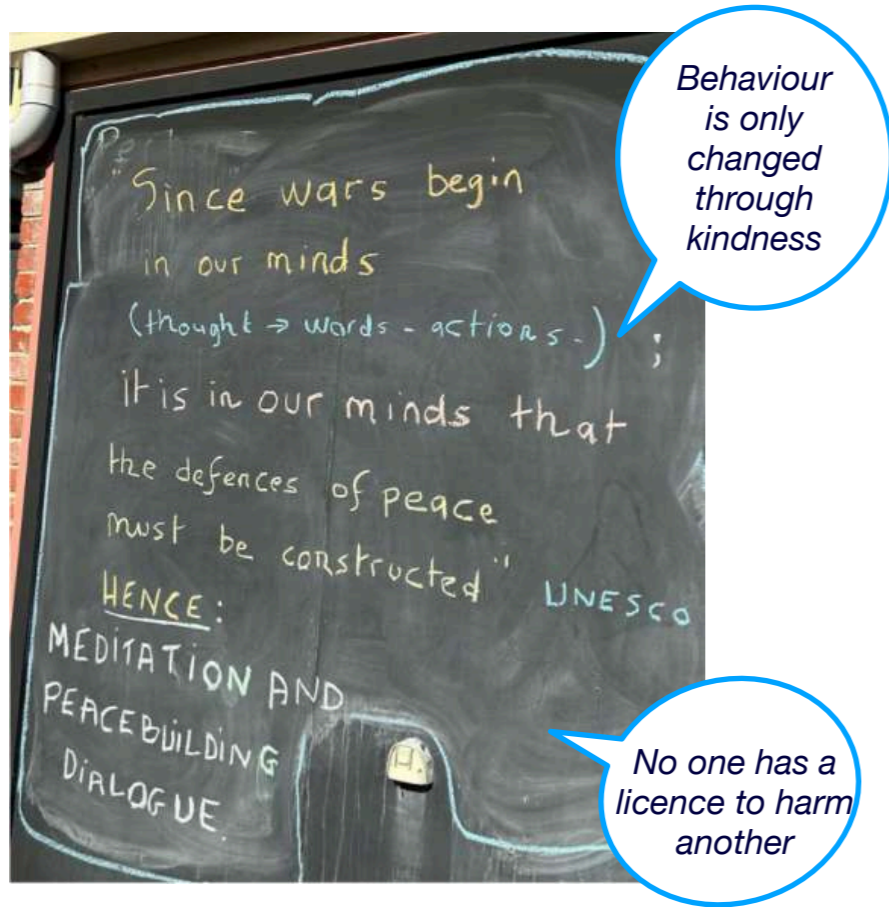 "Since wars begin
in our minds
(thought → words - actions -) ;
it is in our minds that
the defences of peace
must be constructed"
UNESCO
HENCE:
MEDITATION AND
PEACEBUILDING
DIALOGUE.
Behaviour
is only
changed
through
kindness
No one has a
licence to harm
another